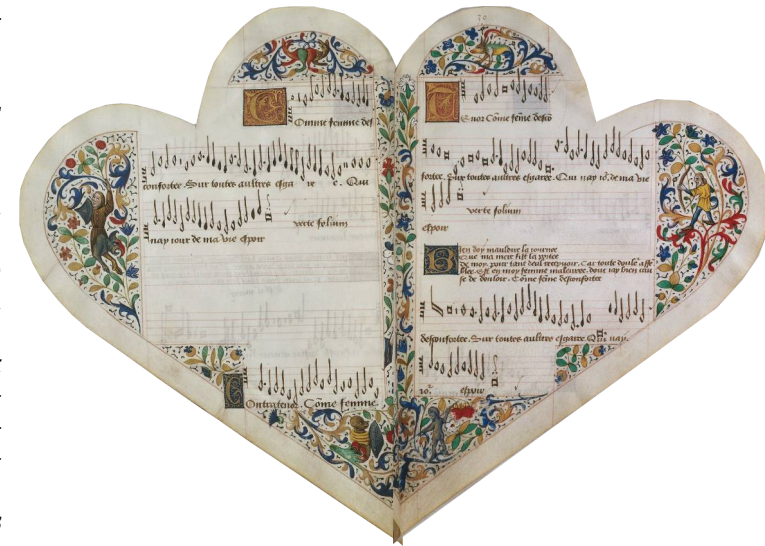 Omme femme des
confortee. Sur toutes aultres esgaree. Qui
nay iour de ma vie espoir
verte folium
Ontratenor. Cõme femme
70
Enor Cõme fẽme desco
fortee. Sur toutes aultres esgaree. Qui nay ior de ma vie
verte folium
espoir
ien doy mauldire la iournee
Que ma mere fist la portee
De moy. pour tant deul recepuoir. Car toute doule
Est en moy femme maleuree. dont iay bien cau
se de douloir. Cõme fẽme desconfortee
desconfortee. Sur toutes aultres esgaree. Qui nay.
ior espoir